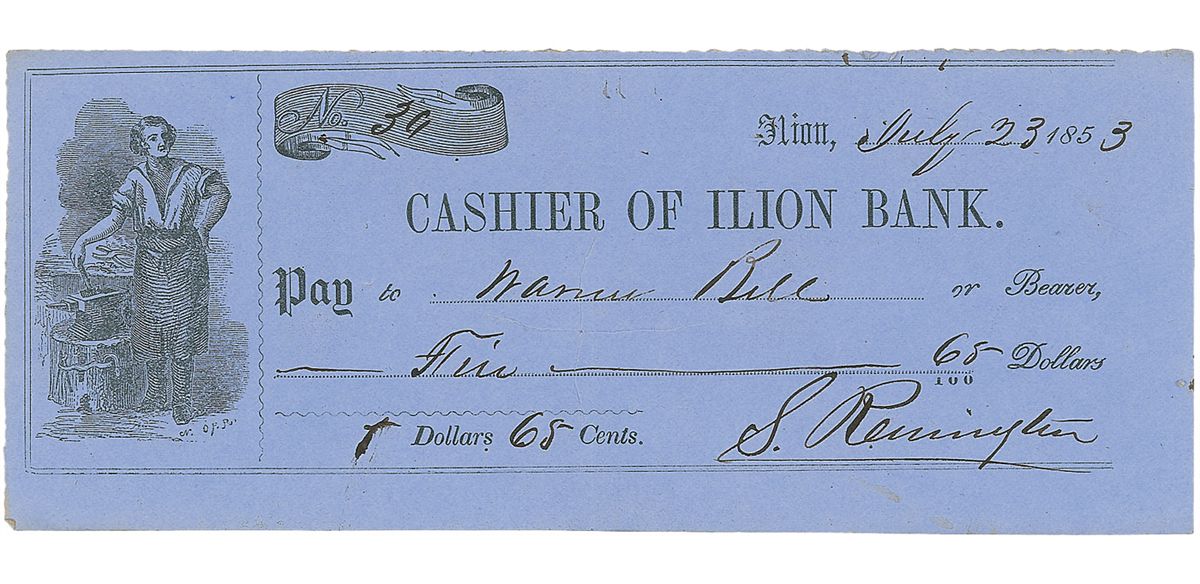 No. 39
Ilion, July 23 1853
CASHIER OF ILION BANK.
Pay to Warner Bell or Bearer,
Five 65/100 Dollars
5 Dollars 65 Cents.
S. Remington